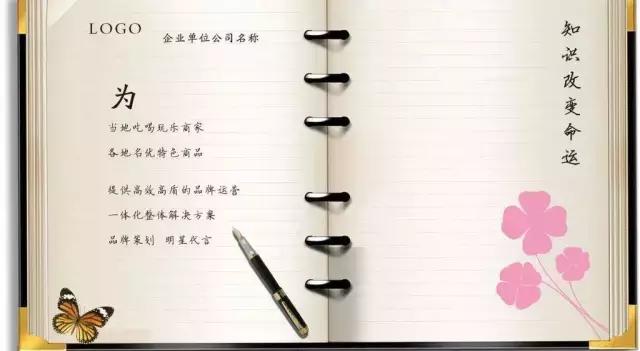 LOGO
企业单位公司名称
为
当地吃喝玩乐商家
各地名优特色商品
提供高效高质的品牌运营
一体化整体解决方案
品牌策划 明星代言
知识改变命运